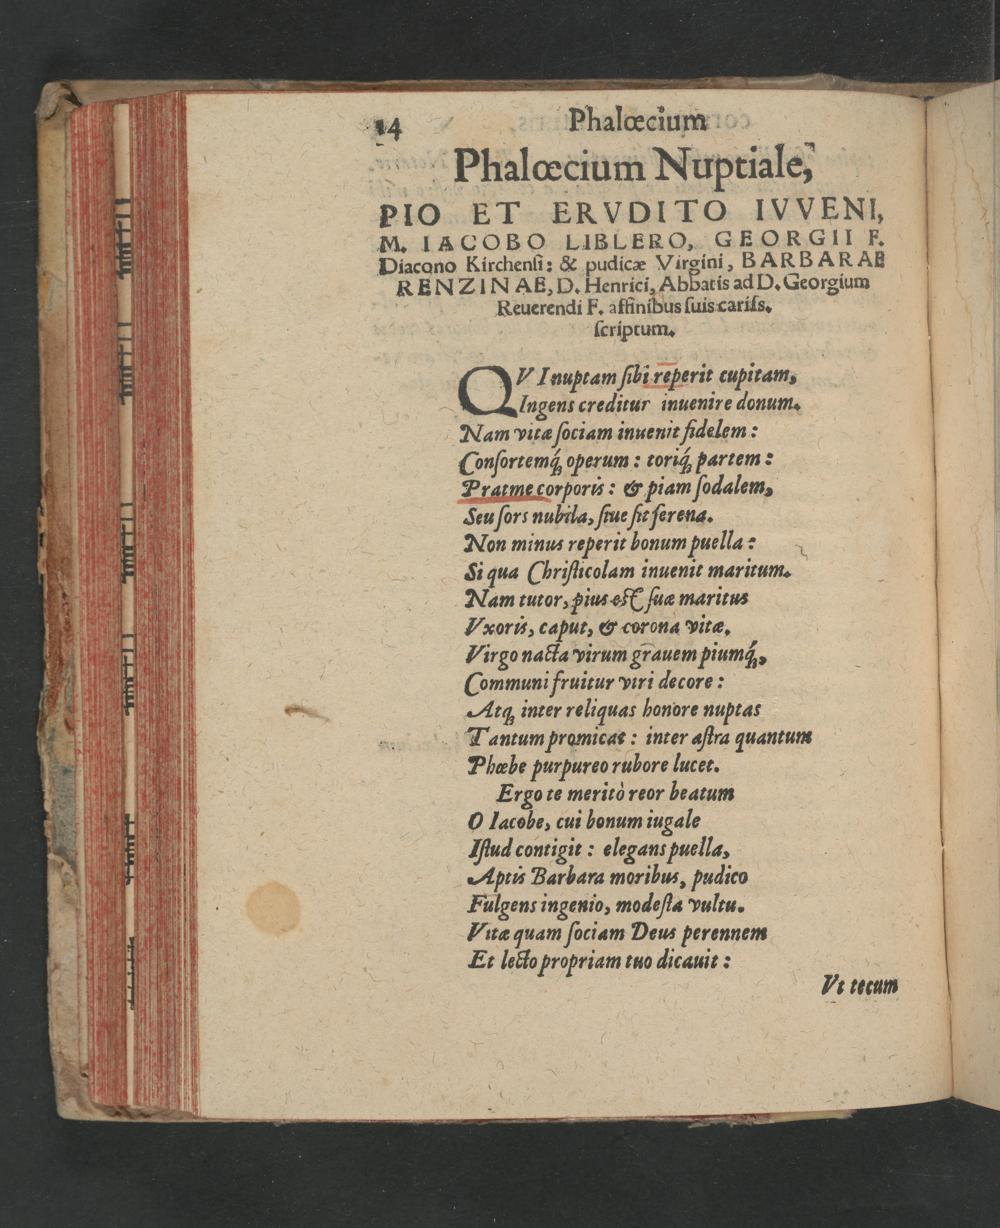 14 Phalœcium
Phalœcium Nuptiale,
PIO ET ERVDITO IVVENI,
M. IACOBO LIBLERO, GEORGII F.
Diacono Kirchensi: & pudicæ Virgini, BARBARAE
RENZINAE, D. Henrici, Abbatis ad D. Georgium
Reuerendi F. affinibus suis cariss.
scriptum.
QVI nuptam sibi reperit cupitam,
Ingens creditur inuenire donum.
Nam vitæ sociam inuenit fidelem:
Consortemq́; operum: toriq́; partem:
Parteme corporis: & piam sodalem,
Seu sors nubila, siue sit serena.
Non minus reperit bonum puella:
Si qua Christicolam inuenit maritum.
Nam tutor, pius est suæ maritus
Vxoris, caput, & corona vitæ.
Virgo nacta virum grauem piumq́;,
Communi fruitur viri decore:
Atq; inter reliquas honore nuptas
Tantum promicat: inter astra quantum
Phœbe purpureo rubore lucet.
Ergo te meritò reor beatum
O Iacobe, cui bonum iugale
Istud contigit: elegans puella,
Aptis Barbara moribus, pudico
Fulgens ingenio, modesta vultu.
Vitæ quam sociam Deus perennem
Et lecto propriam tuo dicauit:
Vt tecum